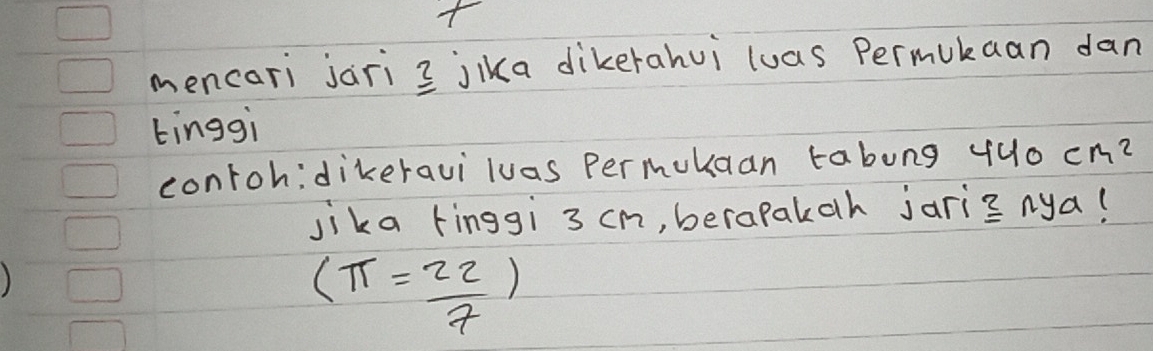 mencari jari 2 jika diketahui luas Permukaan dan
tinggi
contoh: diketaui luas Permukaan tabung 440 cm²
jika tinggi 3 cm, berapakah jari 2 nya!
(π = 22/7)